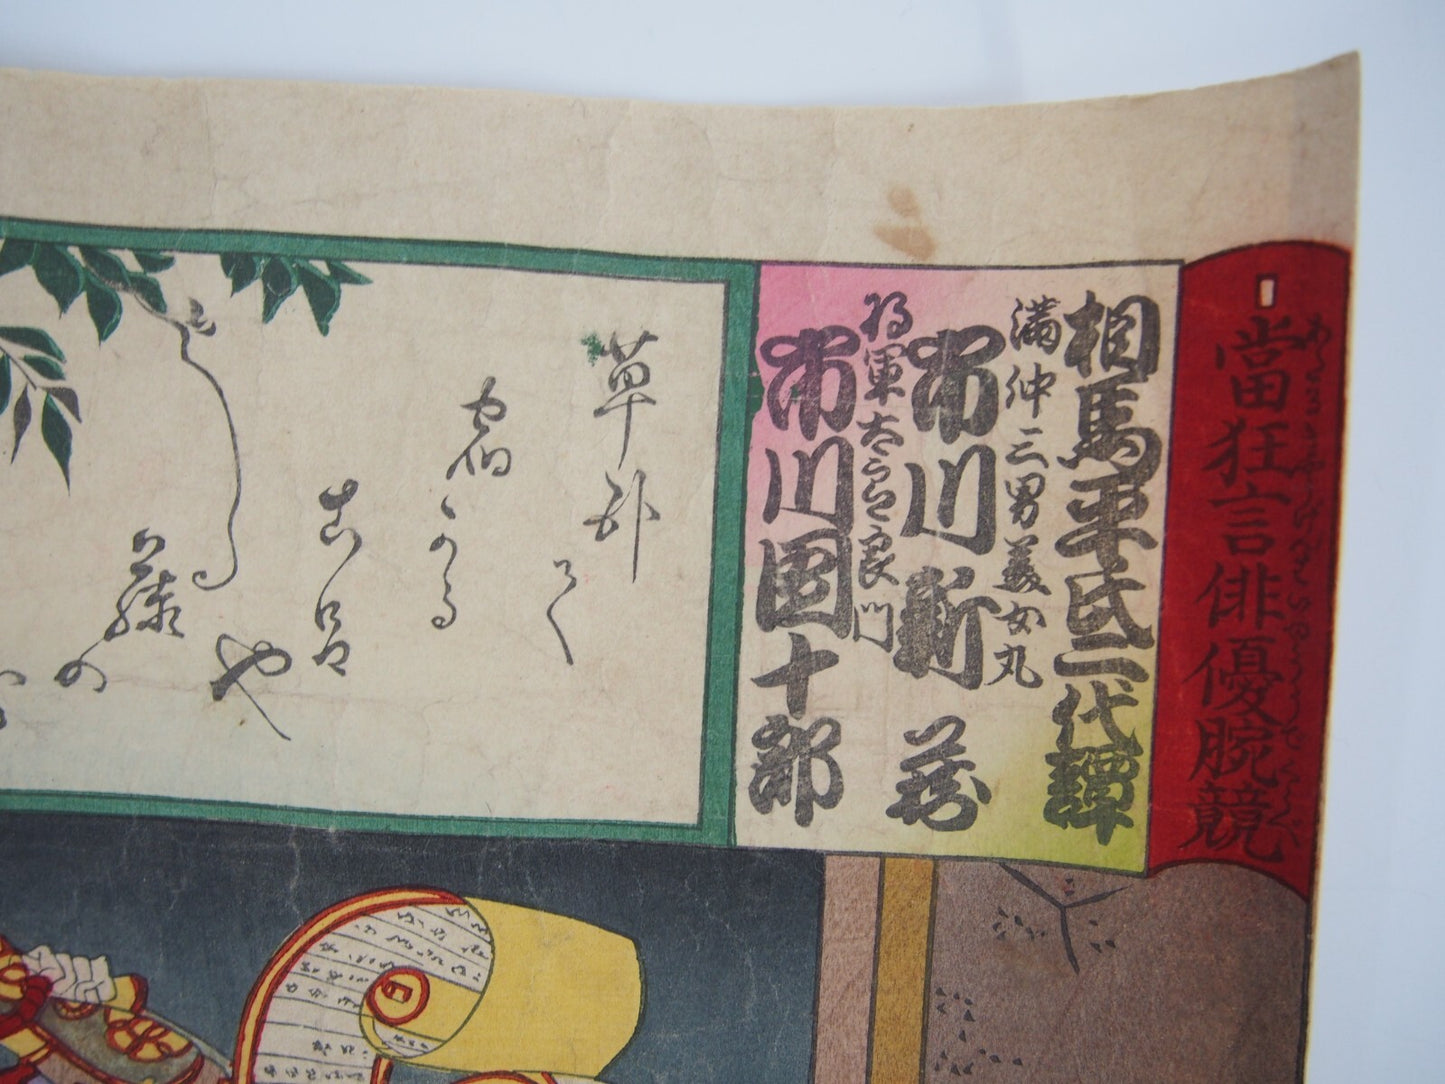 當狂言俳優腕競
相馬平氏二代譚
満仲三男美女丸
市川新蔵
将軍太郎良門
市川團十郎
草臥て
宿かる
ころ
や
藤の